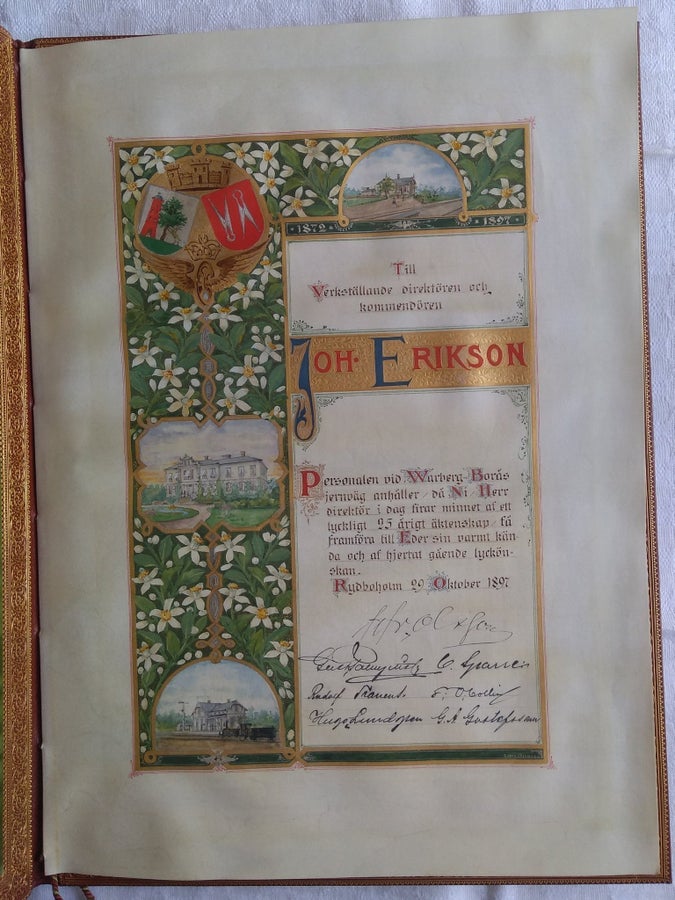 1872 1897
Till
Verkställande direktören och
kommendören
JOH. ERIKSON
Personalen vid Warberg-Borås
jernväg anhåller då Ni Herr
direktör i dag firar minnet af ett
lyckligt 25 årigt äktenskap få
framföra till Eder sin varmt kän
da och af hjertat gående lyckön-
skan.
Rydboholm 29 Oktober 1897
C. Sparre
Rudolf
Hugo Lundgren G. A. Gustafsson